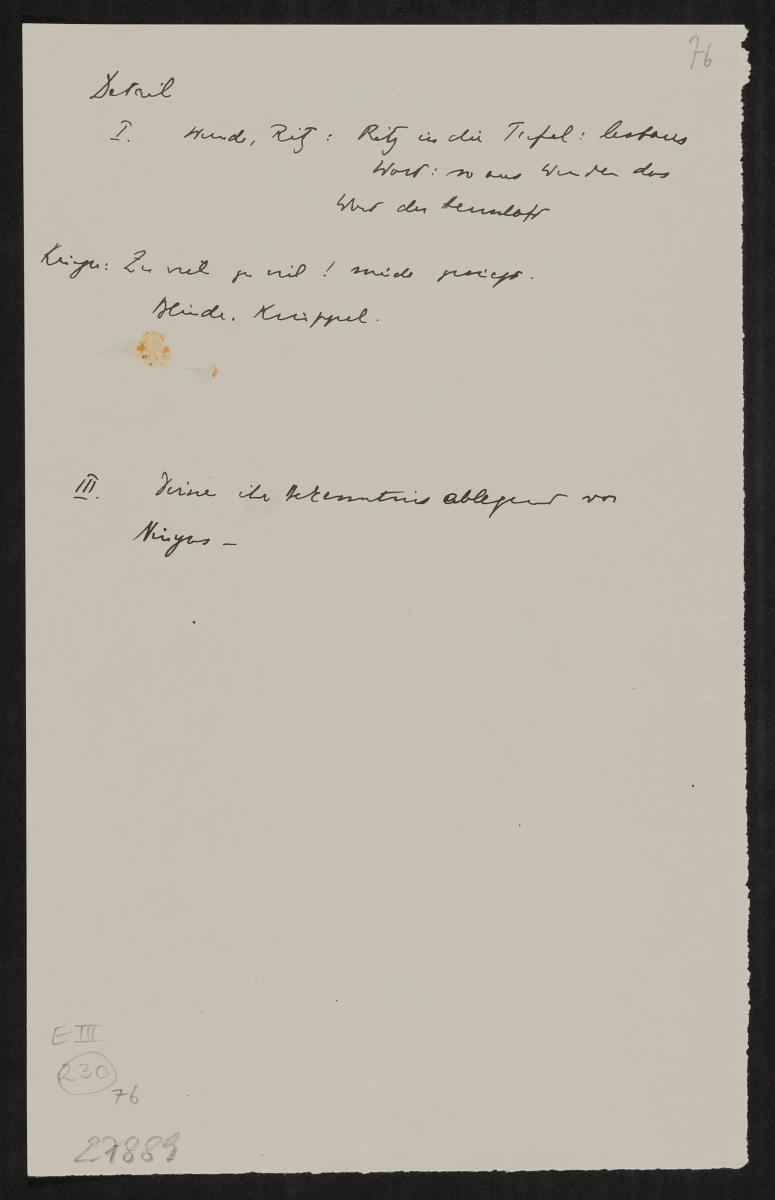 76
Detail
I. Wunde, Ritz: Ritz in die Tafel: lesbares
Wort: so aus Wunden das
Wort der
Krieger: Zu viel zu viel! müde gesiegt.
Blinde. Knüppel.
III. ihr Bekenntnis ablegend vor
Ninyas –
E III
230
76
27889